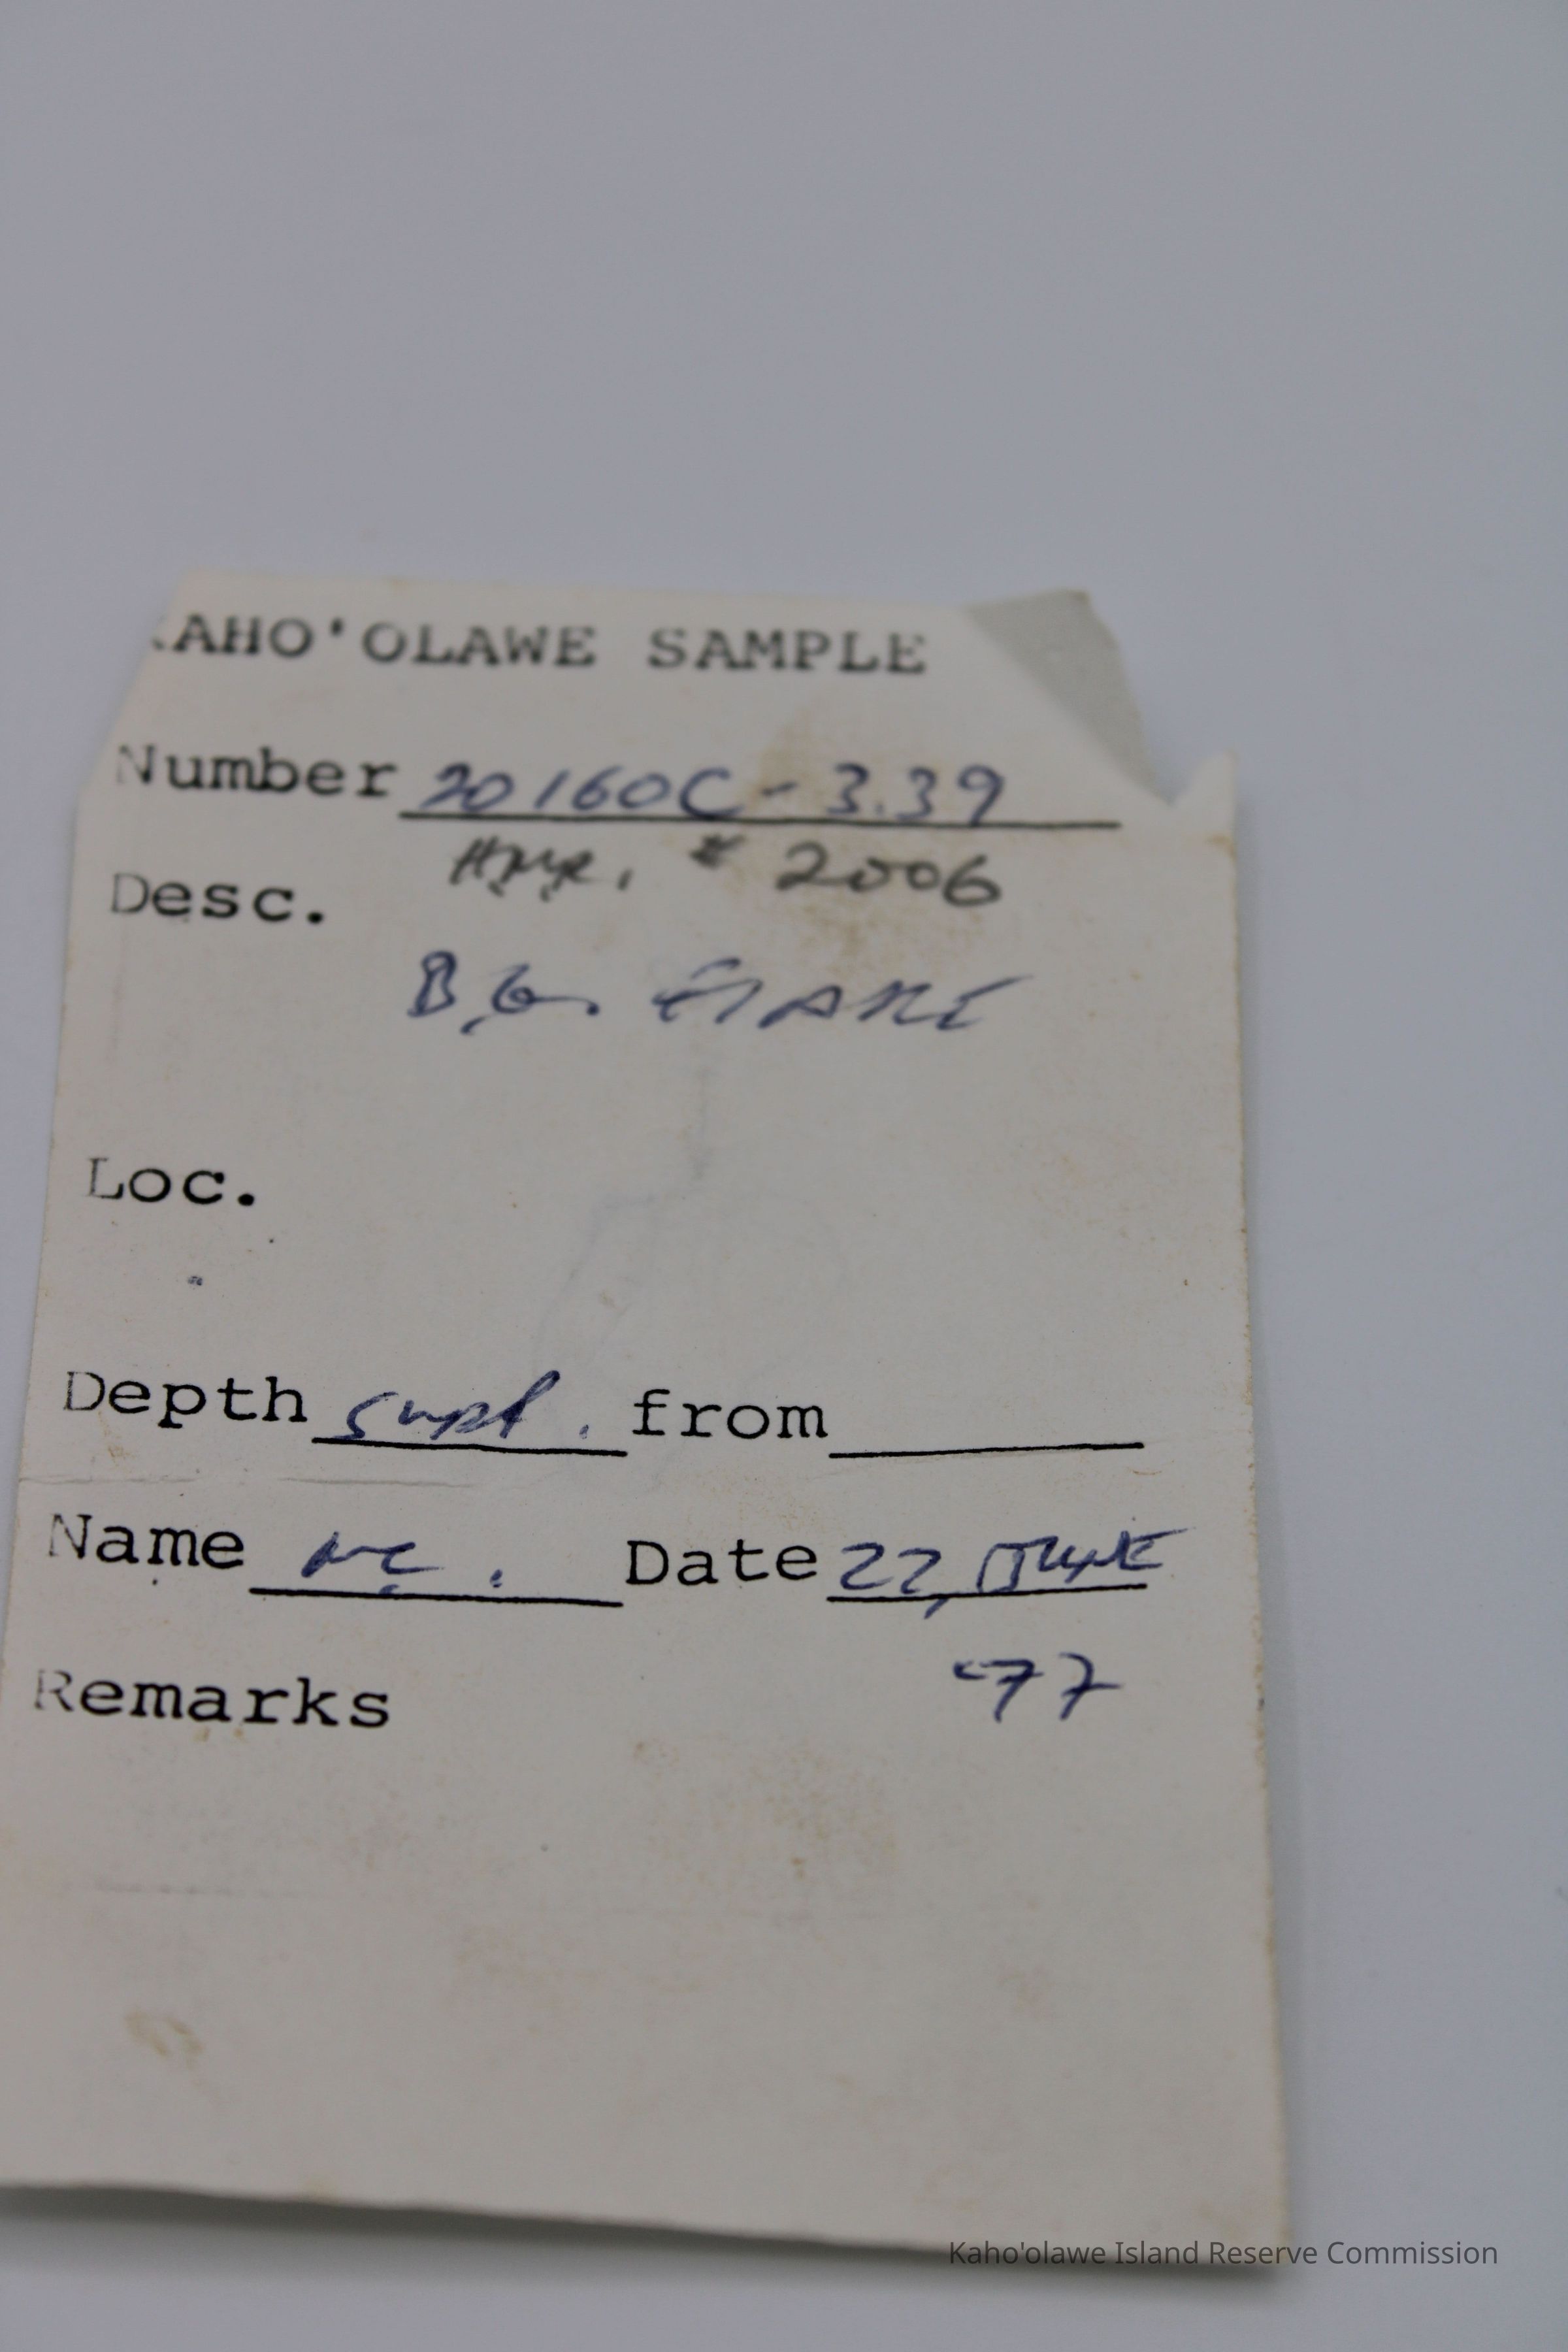 KAHO'OLAWE SAMPLE
Number 20160C - 3.39
Desc. # 2006
B.G. FLAKE
Loc.
Depth surf. from
Name Date 22, JUNE
'77
Remarks
Kaho'olawe Island Reserve Commission